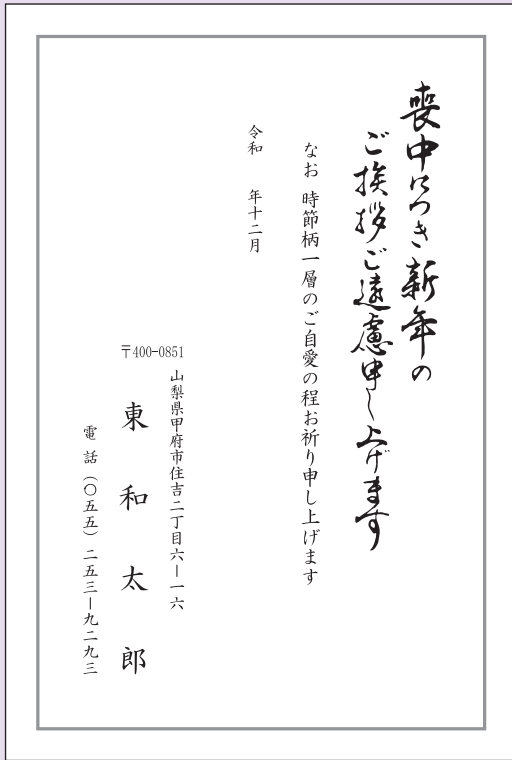 喪中につき新年の
ご挨拶ご遠慮申し上げます
なお 時節柄一層のご自愛の程お祈り申し上げます
令和　年十二月
〒400-0851
山梨県甲府市住吉二丁目六ー一六
東和太郎
電話（〇五五）二五三ー九二九三